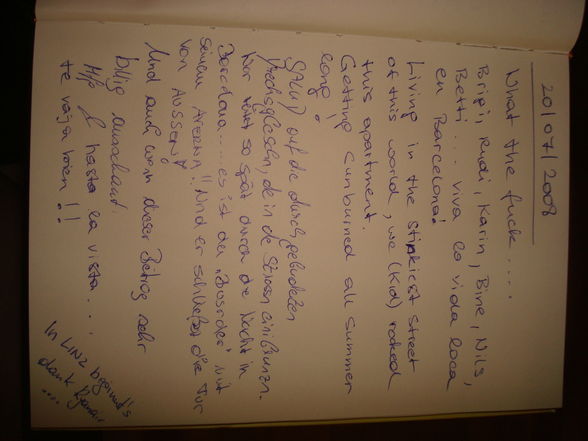 20/07/2008
What the fuck.....
Brigi, Rudi, Karin, Bine, Nils,
Betti... viva la vida loca
en Barcelona!
Living in the stinkiest street
of this world, we (kid) rocked
this apartment.
Getting sunburned all summer
long!
auf die durchgeknallten
die in die Strassen
Wer fährt so spät durch die Nacht in
Barcelona.... es ist der mit
seinem !! Und er schließt die Tür
von AUSSEN!
Und auch wenn dieser Beitrag sehr
billig ausschaut.
hasta la vista...
te vaja bien!!
In LINZ beginnt's
....